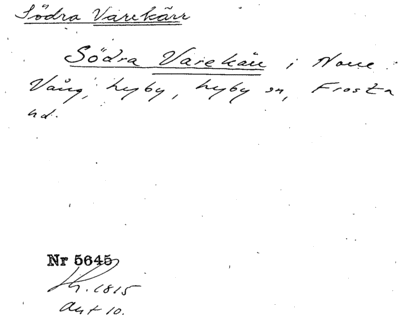 Södra Varekärr
Södra Varekärr i Norre
Vång, Lyby, Lyby sn, Frosta
hd.
Nr 5645
Lh. 1815
Akt 10.